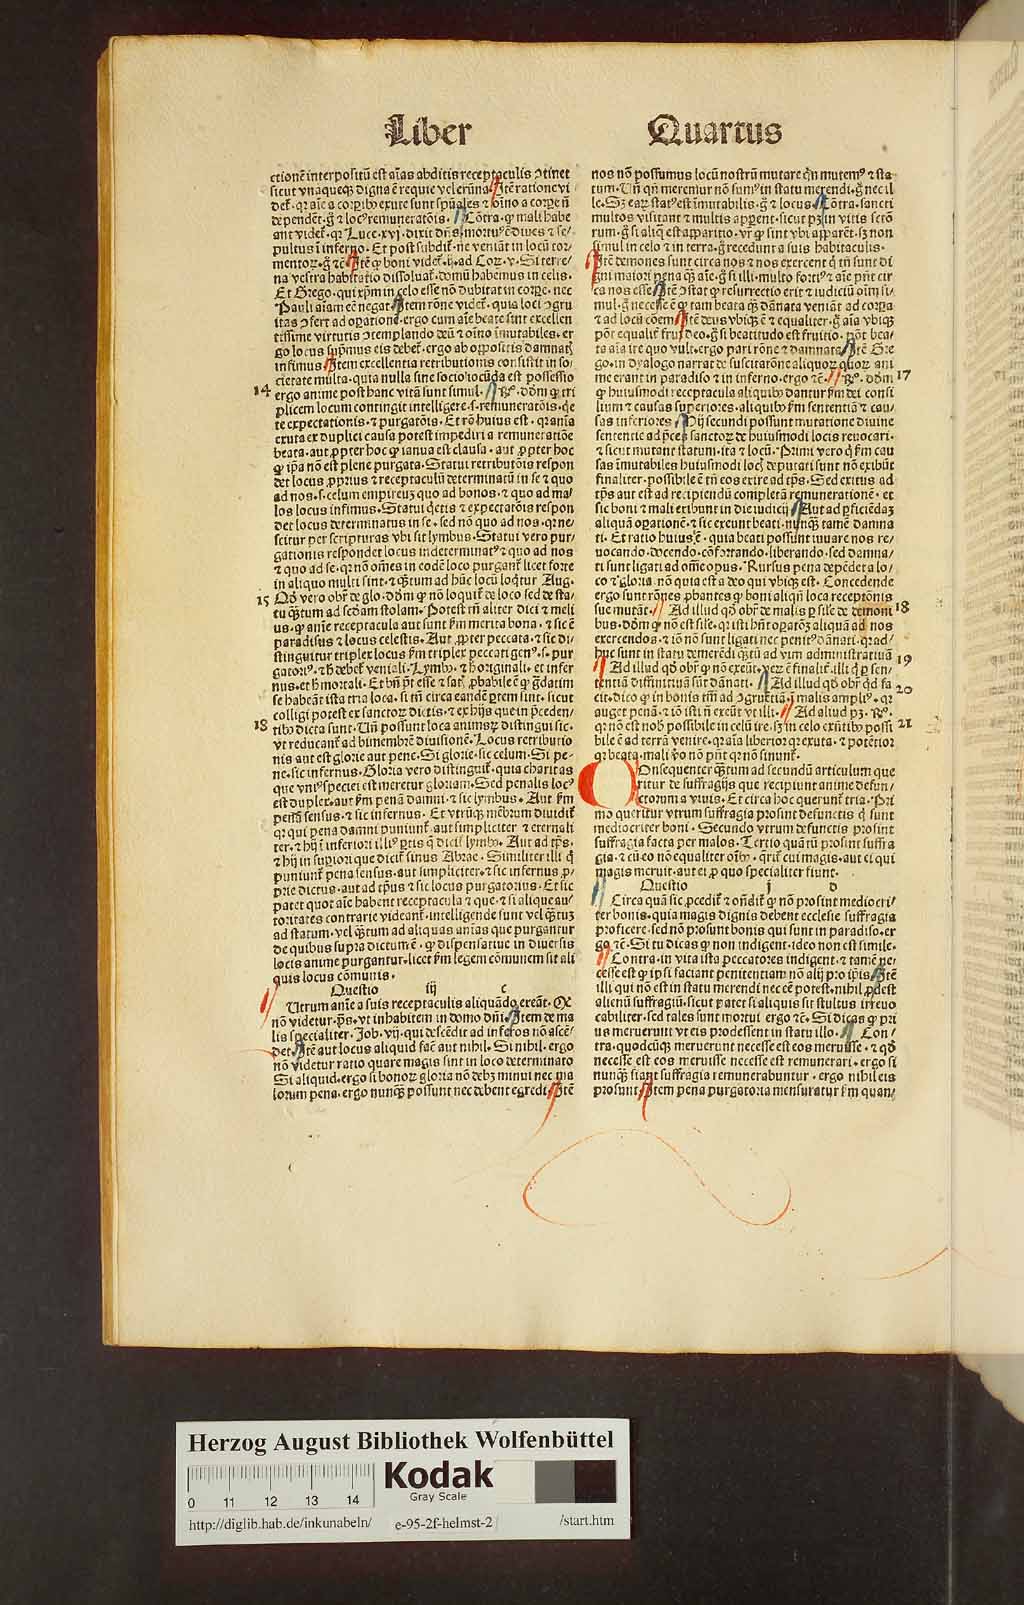 Liber Quartus
ctionē interpositū est aīas abditis receptaculis ↄtinet
sicut vnaqueqȝ digna ē requie vel erūna Itē ratione vi
det᷑. qꝛ aīe a corꝑibꝰ exute sunt spūales ⁊ oīno a corꝑe nō
dependēt. gͦ ⁊ locꝰ remuneratōis. Cōtra. ꝙ mali habe
ant videt᷑. qꝛ Luce. xvj. dixit dn̄s. mortuꝰ ē diues ⁊ se/
pultus ī inferno. Et post subdit᷑. ne veniāt in locū tor
mentoꝝ. gͦ ⁊c̄ Itē ꝙ boni videt᷑. ad Coꝝ. v. Si terre/
na vestra habitatio dissoluat᷑. domū habemus in celis.
Et Grego. qui xp̄m in celo esse nō dubitat in corꝑe. nec
Pauli aīam eē negat Item rōne videt᷑. quia loci ↄgru
itas ↄfert ad oꝑationē. ergo cum aīe beate sunt excellen
tissime virtutis ↄtemplando deū ⁊ oīno īmutabiles. er
go locus supͥmus eis debet᷑. ergo ab oppositis damnatꝭ
infimus Item excellentia retributionis consistit in so/
cietate multa. quia nulla sine socio iocūda est possessio
14 ergo anime post hanc vitā sunt simul. Rͦ. dōm ꝙ tri
plicem locum contingit intelligere. s. remuneratōis. qͥe
te expectationis. ⁊ purgatōis. Et rō huius est. qꝛ anīa
exuta ex duplici causa potest impediri a remuneratiōe
beata. aut ꝓpter hoc ꝙ ianua est clausa. aut ꝓpter hoc
ꝙ ip̄a nō est plene purgata. Statui retributōis respon
det locus ꝓprius ⁊ receptaculū determinatū in se ⁊ quo
ad nos. s. celum empireuȝ quo ad bonos. ⁊ quo ad ma/
los locus infimus. Statui qͥetis ⁊ expectatōis respon
det locus determinatus in se. sed nō quo ad nos. qꝛ ne/
scitur per scripturas vbi sit lymbus. Statui vero pur/
gationis respondet locus indeterminatꝰ ⁊ quo ad nos
⁊ quo ad se. qꝛ nō oēs in eodē loco purgant᷑. licet forte
in aliquo multi sint. ⁊ qȝtum ad hūc locū loqͥtur Aug.
15 Qd̄ vero obr̄ de glo. dōm ꝙ nō loquit᷑ de loco sed de sta/
tu qȝtum ad secdam stolam. Potest tn̄ aliter dici ⁊ meli
us. ꝙ anīe receptacula aut sunt ẜm merita bona. ⁊ sic ē
paradisus ⁊ locus celestis. Aut ꝓpter peccata. ⁊ sic di/
stinguitur triplex locus ẜm triplex peccati genꝰ. s. pur
gatoriꝰ. ⁊ h̄ debet᷑ veniali. Lymbꝰ. ⁊ h̄ originali. et infer
nus. et h̄ mortali. Et bn̄ pōt esse ⁊ satꝭ ꝓbabile ē ꝙ gͣdatim
se habeāt ista tria loca. si tn̄ circa eandē ptem sint. sicut
colligi potest ex sanctoꝝ dictis. ⁊ ex hijs que in p̄ceden/
18 tibꝰ dicta sunt. Un̄ possunt loca animaꝝ distingui sic.
vt reducant᷑ ad bimembrē diuisionē. Locus retributio
nis aut est glorie aut pene. Si glorie. sic celum. Si pe/
ne. sic infernus. Gloria vero distinguit᷑. quia charitas
que vniꝰ speciei est meretur gloriam. Sed penalis locꝰ
est duplex. aut ẜm penā damni. ⁊ sic lymbus. Aut ẜm
penā sensus. ⁊ sic infernus. Et vtrūqȝ mēbrum diuidit᷑
qꝛ qui pena damni puniunt᷑. aut simpliciter ⁊ eternali
ter. ⁊ hij ī inferiori illiꝰ ptis q̄ dicit᷑ lymbꝰ. Aut ad tp̄s.
⁊ hij in supiori que dicit᷑ sinus Abrae. Similiter illi q̄
puniunt᷑ pena sensus. aut simpliciter. ⁊ sic infernus ꝓ/
prie dictus. aut ad tp̄us ⁊ sic locus purgatorius. Et sic
patet quot aīe habent receptacula ⁊ que. ⁊ si alique au/
toritates contrarie videant᷑. intelligende sunt vel qȝtuȝ
ad statum. vel qȝtum ad aliquas anīas que purgantur
de quibus supra dictum ē. ꝙ dispensatiue in diuersis
locis anime purgantur. licet ẜm legem cōmunem sit ali
quis locus cōmunis.
Questio iij c
Utrum anīe a suis receptaculis aliquādo exeāt. Qꝙ
nō videtur. p̄s. vt inhabitem in domo dn̄i. Item de ma
lis specialiter. Job. vij. qui descēdit ad inferos nō ascē/
det. Itē aut locus aliquid fac̄ aut nihil. Si nihil. ergo
nō videtur ratio quare magis sint in loco determinato
Si aliquid. ergo si bonoꝝ gloria nō debȝ minui nec ma
lorum pena. ergo nunqȝ possunt nec debent egredi. Itē
nos nō possumus locū nostrū mutare qͥn mutemꝰ ⁊ sta
tum. Un̄ qn̄ meremur nō sumꝰ in statu merendi. gͦ nec il
le. Sȝ eaꝝ statꝰ est īmutabilis. gͦ ⁊ locus. Cōtra. sancti
multos visitant ⁊ multis apparent. sicut pȝ in vitis sctō
rum. gͦ si aliq̄ est apparitio. vr̄ ꝙ sunt vbi apparēt. sȝ non
simul in celo ⁊ in terra. gͦ recedunt a suis habitaculis.
Itē demones sunt circa nos ⁊ nos exercent qͥ tn̄ sunt di
gni maiori pena qȝ aīe. gͦ si illi. multo fortiꝰ ⁊ aīe pn̄t cir
ca nos esse Itē ↄstat ꝙ resurrectio erit ⁊ iudiciū oīm si/
mul. gͦ necesse ē ꝙ tam beata qȝ dānata veniāt ad corꝑa
⁊ ad locū cōem Itē deus vbiqȝ ē ⁊ equaliter. gͦ aīa vbiqȝ
pōt equalit᷑ frui deo. gͦ si beatitudo est fruitio. pōt bea/
ta aīa ire quo vult. ergo pari rōne ⁊ damnata Itē Gre
go. in dyalogo narrat de suscitatōne aliquoꝝ quoꝝ ani
me erant in paradiso ⁊ in inferno. ergo ⁊c̄. Rͦ. dōm 17
ꝙ huiusmodi receptacula aliquibꝰ dantur ẜm dei consi
lium ⁊ causas superiores. aliquibꝰ ẜm sententiā ⁊ cau/
sas inferiores Hij secundi possunt mutatione diuine
sententie ad p̄ces sanctoꝝ de huiusmodi locis reuocari.
⁊ sicut mutant statum. ita ⁊ locū. Primi vero qͥ ẜm cau
sas īmutabiles huiusmodi locꝭ deputati sunt nō exibūt
finaliter. possibile ē tn̄ eos exire ad tp̄s. Sed exitus ad
tp̄s aut est ad recipiendū completā remunerationē. et
sic boni ⁊ mali exibunt in die iudicij Aut ad ꝑficiēdaȝ
aliquā oꝑationē. ⁊ sic exeunt beati. nunqȝ tamē damna
ti. Et ratio huiꝰ ē. quia beati possunt iuuare nos re/
uocando. docendo. cōfortando. liberando. sed damna/
ti sunt ligati ad omē opus. Rursus pena depēdet a lo/
co ⁊ gloria nō quia est a deo qui vbiqȝ est. Concedende
ergo sunt rōnes ꝓbantes ꝙ boni aliqn̄ loca receptōnis
sue mutāt. Ad illud qd̄ obr̄ de malis ꝑ sile de demoni 18
bus. dōm ꝙ nō est sile. qꝛ isti hn̄t oꝑatōȝ aliquā ad nos
exercendos. ⁊ iō nō sunt ligati nec penitꝰ dānati. qꝛ ad/
huc sunt in statu demerēdi qȝtū ad vim administratiuā
Ad illud qd̄ obr̄ ꝙ nō exeūt. veꝝ ē finalit᷑. illi qͥ ꝑ sen/ 19
tentiā diffinitiuā sūt dānati. Ad illud qd̄ obr̄ qd̄ fa 20
cit. dico ꝙ in bonis tm̄ ad ↄgruētiā. ī malis ampliꝰ. qꝛ
auget penā. ⁊ iō isti n̄ exeūt vt illi. Ad aliud pȝ. Rͦ. 21
qꝛ nō est nobꝭ possibile in celū ire. sȝ in celo exn̄tibꝰ possi
bile ē ad terrā venire. qꝛ aīa liberior qꝛ exuta. ⁊ potētior
qꝛ beata. mali vͦo nō pn̄t qꝛ nō sinunt᷑.
COnsequenter qȝtum ad secundū articulum que
ritur de suffragijs que recipiunt anime defun/
ctorum a viuis. Et circa hoc querunt᷑ tria. Pri
mo queritur vtrum suffragia prosint defunctis qͥ sunt
mediocriter boni. Secundo vtrum defunctis prosint
suffragia facta per malos. Tertio quā tū prosint suffra
gia. ⁊ cū eo nō equaliter oībꝰ. qͥrit᷑ cui magis. aut ei qui
magis meruit. aut ei ꝓ quo specialiter fiunt.
Questio j d
Circa quā sic ꝓcedit᷑ ⁊ on̄dit᷑ ꝙ nō prosint mediocri/
ter bonis. quia magis dignis debent ecclesie suffragia
proficere. sed nō prosunt bonis qui sunt in paradiso. er
go ⁊c̄. Si tu dicas ꝙ non indigent. ideo non est simile.
Contra. in vita ista peccatores indigent. ⁊ tamē ne/
cesse est ꝙ ipsi faciant penitentiam nō alij pro ip̄is Itē
illi qui nō est in statu merendi nec eē potest. nihil ꝓdest
alienū suffragiū. sicut patet si aliquis sit stultus irreuo
cabiliter. sed tales sunt mortui. ergo ⁊c̄. Si dicas ꝙ pri
us meruerunt vt eis prodessent in statu illo. Con/
tra. quodcūqȝ meruerunt necesse est eos meruisse. ⁊ qd̄
necesse est eos meruisse necesse est remunerari. ergo si
nunqȝ fiant suffragia remunerabuntur. ergo nihil eis
prosunt Item pena purgatoria mensuratur ẜm quan/
Herzog August Bibliothek Wolfenbüttel
Kodak
Gray Scale
0 11 12 13 14
http://diglib.hab.de/inkunabeln/ e-95-2f-helmst-2 /start.htm